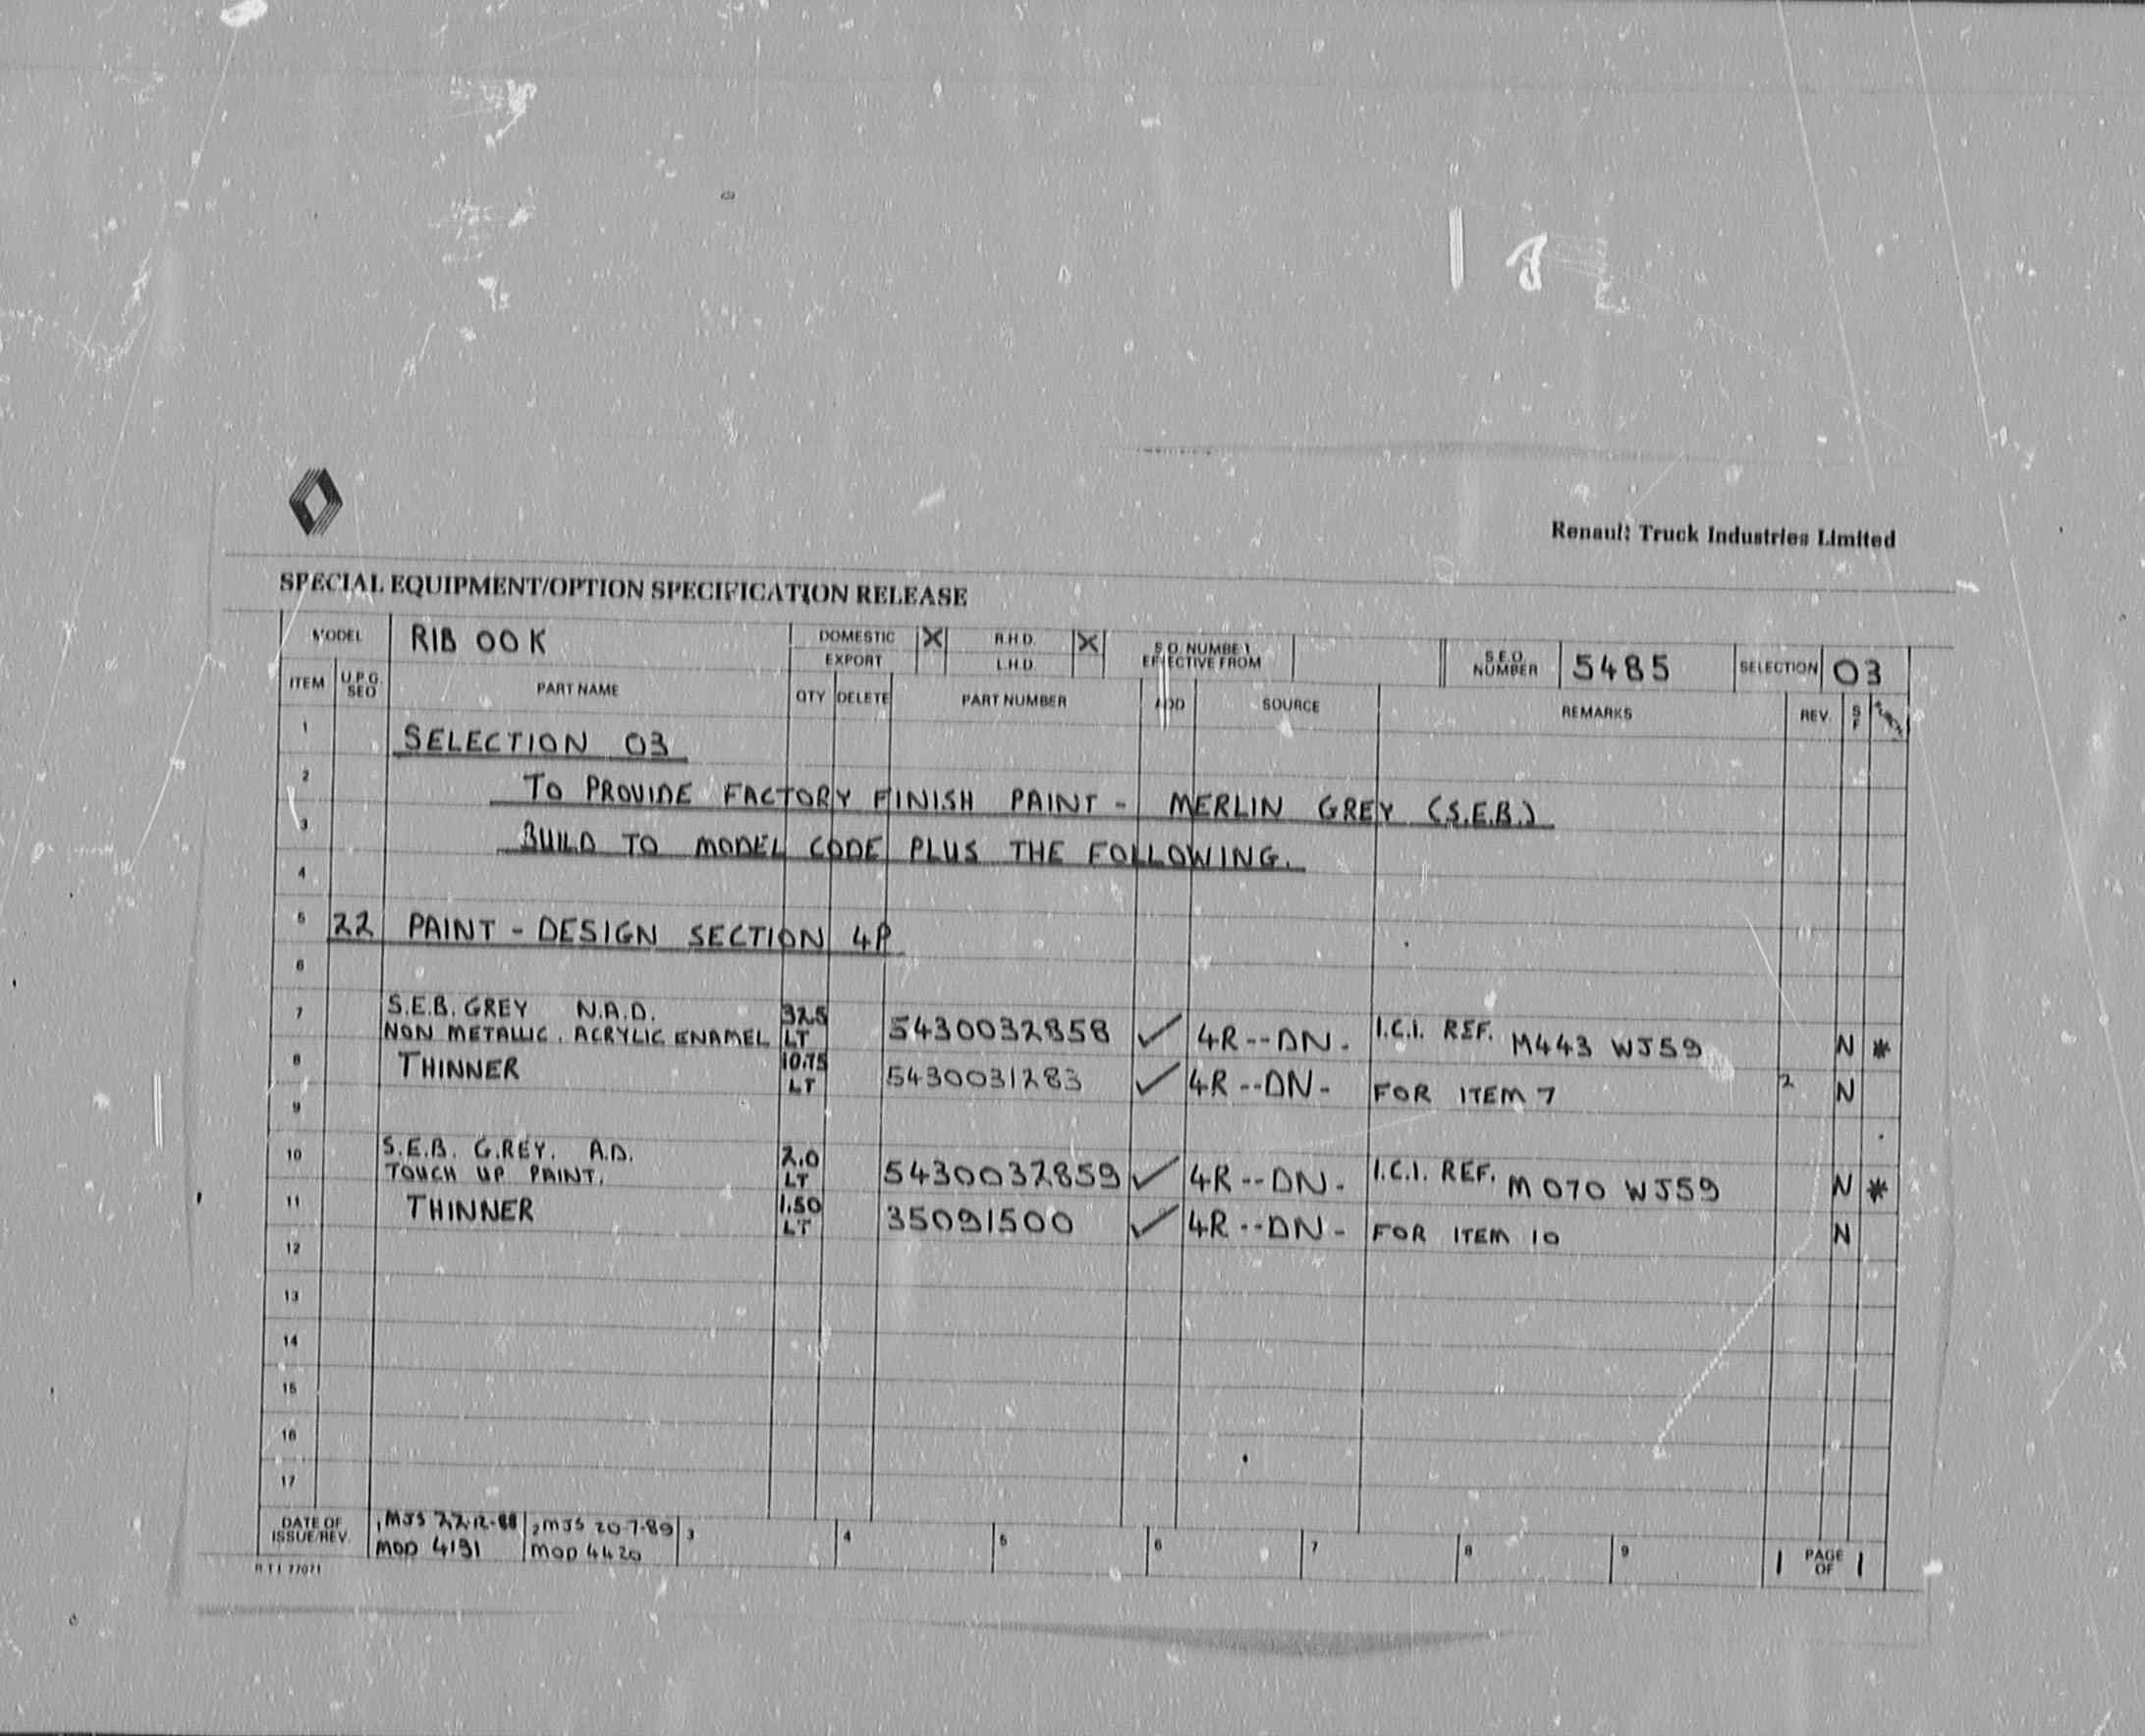 Renault Truck Industries Limited
SPECIAL EQUIPMENT/OPTION SPECIFICATION RELEASE
MODEL RIB 00 K DOMESTIC X R.H.D. X S.O. NUMBER S.E.O. NUMBER 5485 SELECTION 03
EXPORT L.H.D. EFFECTIVE FROM
ITEM U.P.G. SEQ PART NAME QTY DELETE PART NUMBER ADD SOURCE REMARKS REV. S F
1 SELECTION 03
2 TO PROVIDE FACTORY FINISH PAINT - MERLIN GREY (S.E.B.)
3 BUILD TO MODEL CODE PLUS THE FOLLOWING.
4
5 22 PAINT - DESIGN SECTION 4P
6
7 S.E.B. GREY N.A.D. 32.5
NON METALLIC. ACRYLIC ENAMEL LT 5430032858 ✓ 4R--DN- I.C.I. REF. M443 WJ59 N *
8 THINNER 10.75 LT 5430031283 ✓ 4R--DN- FOR ITEM 7 2 N
9
10 S.E.B. G.REY. A.D. 2.0
TOUCH UP PAINT. LT 5430032859 ✓ 4R--DN- I.C.I. REF. M070 WJ59 N *
11 THINNER 1.50 LT 35091500 ✓ 4R--DN- FOR ITEM 10 N
12
13
14
15
16
17
DATE OF ISSUE/REV. 1 MJS 22-12-88 2 MJS 20-7-89 3 4 5 6 7 8 9 1 PAGE OF 1
MOD 4191 MOD 4420
R T I 77071